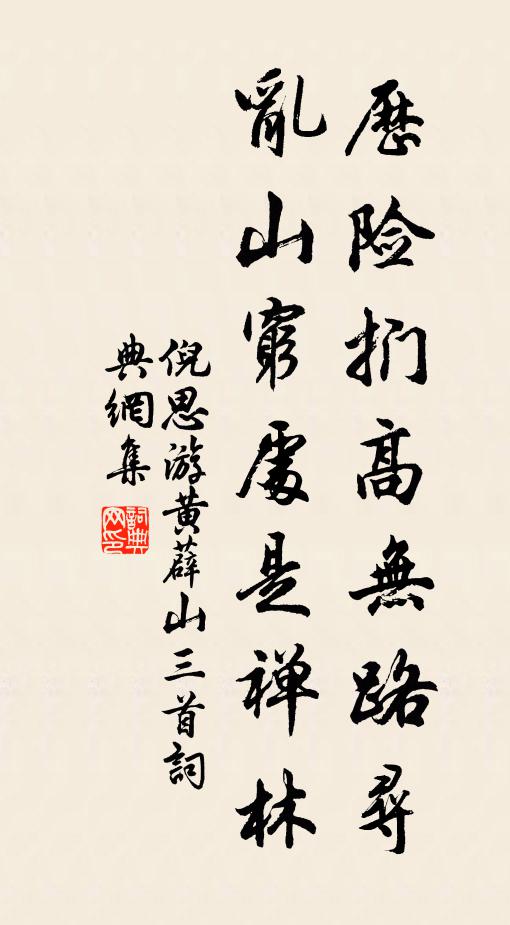 歷险扪高無路尋
亂山窮處是禅林
倪思游黄薜山三首詞
典網集
詞典网印